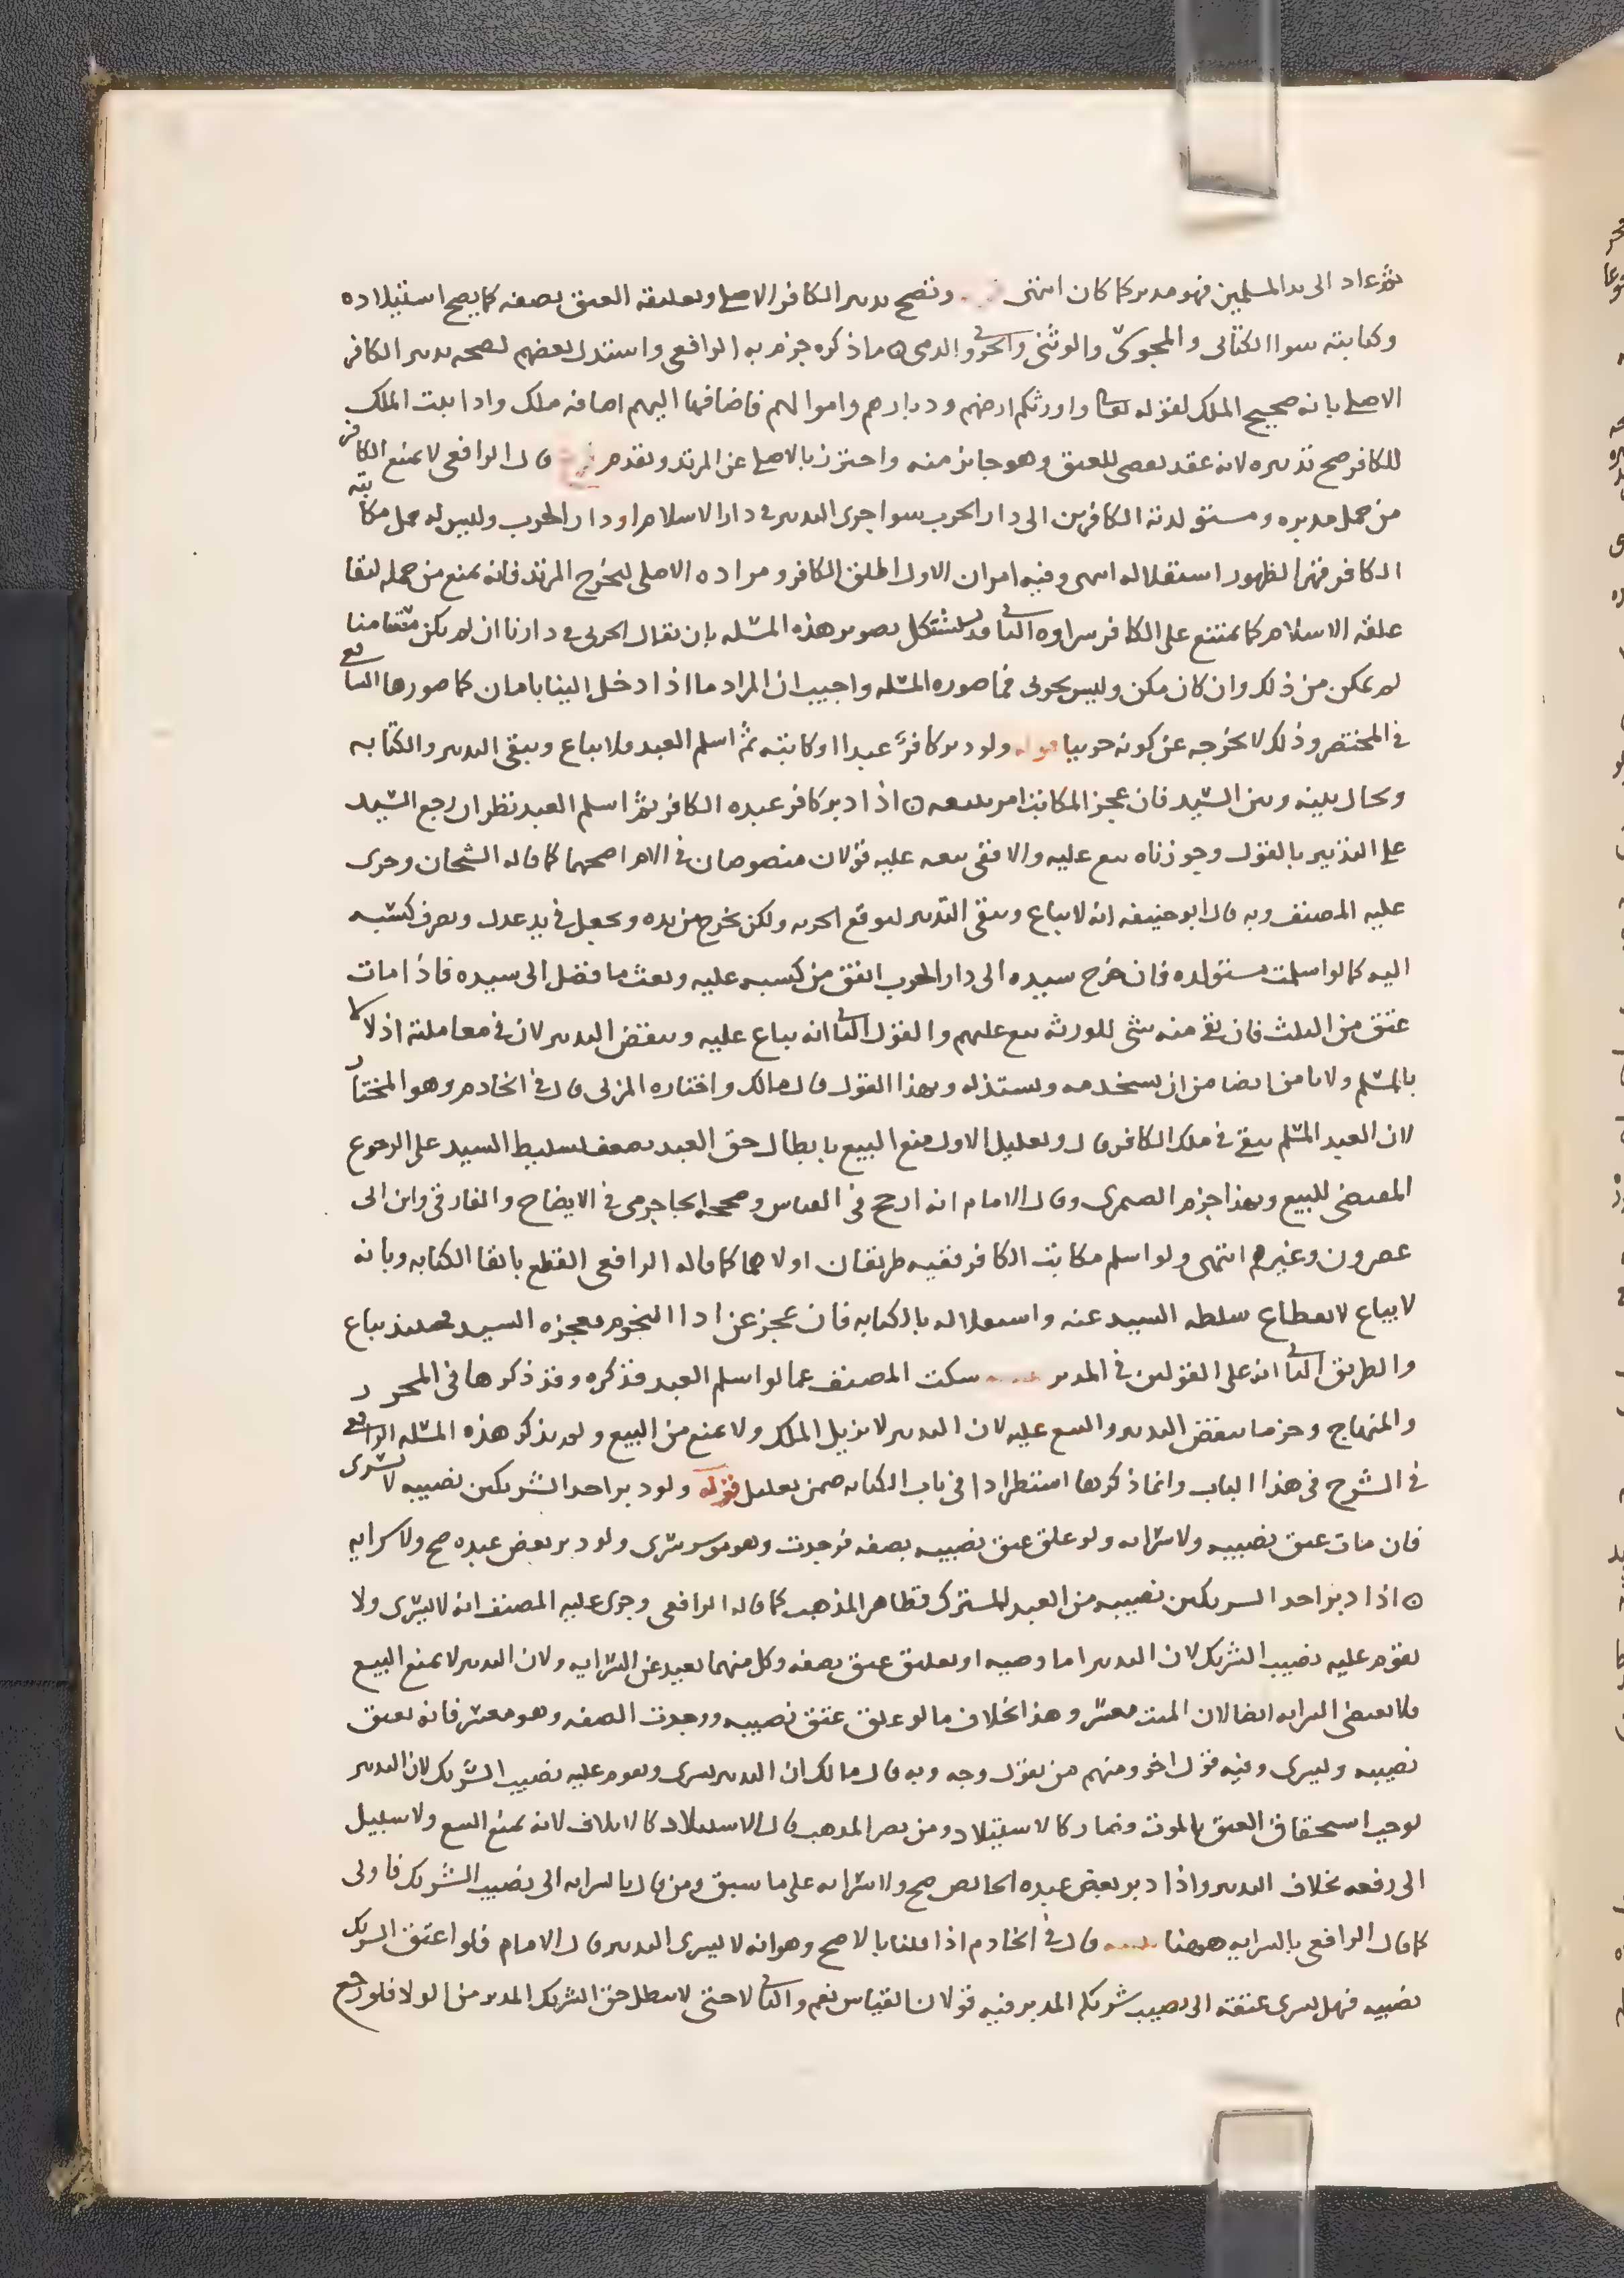 ثم عاد الى يد المسلمين فهو مدبر كما كان انتهى وتصح تدبير الكافر الاصلي وتعليقه العتق بصفه كما يصح استيلاده
وكتابته سوا الكتابى والمجوسى والوثنى والحربى والذمى ۞ ما ذكره جزم به الرافعى واستدل بعضهم لصحه تدبير الكافر
الاصلي بانه صحيح الملك لقوله تعالى واورثكم ارضهم وديارهم واموالهم فاضافها اليهم اضافه ملك واذا ثبت الملك
للكافر صح تدبيره لانه عقد يفضى للعتق وهو جايز منه واحترز بالاصلي عن المرتد وتقدم قال الرافعى لا يمنع الكافر
من حمل مدبره ومستولدته الكافرين الى دار الحرب سوا جرى التدبير فى دار الاسلام او دار الحرب وليس له حمل مكاتبه
الكافر قهرا لظهور استقلاله انتهى وفيه امران الاول اطلق الكافر ومراده الاصلى ليخرج المرتد فانه يمنع من حمله لبقا
علقه الاسلام كما يمتنع على الكافر شراوه الثانى قد يستشكل تصوير هذه المسئله بان يقال الحربى فى دارنا ان لم يكن مستامنا
لم يمكن من ذلك وان كان مكن وليس بحربى فما صوره المسئله واجيب ان المراد ما اذا دخل الينا بامان كما صورها الشافعى
فى المختصر وذلك لا يخرجه عن كونه حربيا قوله ولو دبر كافر عبدا او كاتبه ثم اسلم العبد فلا يباع ويبقى التدبير والكتابه
ويحال بينه وبين السيد فان عجز المكاتب امر ببيعه ۞ اذا دبر كافر عبده الكافر ثم اسلم العبد نظر ان رجع السيد
على التدبير بالقول وجوزناه بيع عليه والا ففى بيعه عليه قولان منصوصان فى الام اصحهما كما قاله الشيخان وجرى
عليه المصنف وبه قال ابو حنيفه انه لا يباع ويبقى التدبير لتوقع الحريه ولكن يخرج من يده ويجعل فى يد عدل ويصرف كسبه
اليه كما لو اسلمت مستولده فان خرج سيده الى دار الحرب انفق من كسبه عليه وبعث ما فضل الى سيده فاذا مات
عتق من الثلث فان بقى منه شى للورثه بيع عليهم والقول الثانى انه يباع عليه وينقض التدبير لان فى معاملته اذلالا
بالمسلم ولا نامن ايضا من ان يستخدمه ويستذله وبهذا القول قال مالك واختاره المزنى قال فى الخادم وهو المختار
لان العبد المسلم يبقى فى ملك الكافر قال وتعليل الاول منع البيع بابطال حق العبد يضعف لتسليط السيد على الرجوع
المقتضى للبيع وبهذا جزم الصيمرى وقال الامام انه ارجح فى القياس وصححه الجاجرمى فى الايضاح والفارقى وابن ابى
عصرون وغيرهم انتهى ولو اسلم مكاتب الكافر ففيه طريقان اولاهما كما قاله الرافعى القطع بابقا الكتابه وبانه
لا يباع لانقطاع سلطه السيد عنه واستقلاله بالكتابه فان عجز عن ادا النجوم بعجزه السيد فحينئذ يباع
والطريق الثانى انه على القولين فى المدبر سكت المصنف عما لو اسلم العبد فذكره وقد ذكرها فى المحرر
والمنهاج وجزما بنقض التدبير والبيع عليه لان التدبير لا يزيل الملك ولا يمنع من البيع ولم يذكر هذه المسئله الرافعى
فى الشرح فى هذا الباب وانما ذكرها استطرادا فى باب الكتابه ضمن تعليل قوله ولو دبر احد الشريكين نصيبه لا يسرى
فان مات عتق نصيبه ولا سرايه ولو علق عتق نصيبه بصفه فوجدت وهو موسر سرى ولو دبر بعض عبده صح ولا سرايه
۞ اذا دبر احد الشريكين نصيبه من العبد المشترك فظاهر المذهب كما قاله الرافعى وجرى عليه المصنف انه لا يسرى ولا
يقوم عليه نصيب الشريك لان التدبير اما وصيه او تعليق عتق بصفه وكل منهما بعيد عن السرايه ولان التدبير لا يمنع البيع
فلا يقتضى السرايه ايضا لان الميت معسر وهذا بخلاف ما لو علق عتق نصيبه ووجدت الصفه وهو معسر فانه يعتق
نصيبه وليسرى وفيه قول اخر ومنهم من يقول وجه وبه قال مالك ان التدبير يسرى ويقوم عليه نصيب الشريك لان التدبير
يوجب استحقاق العتق بالموت فصار كالاستيلاد ومن نصر المذهب قال الاستيلاد كالاتلاف لانه يمنع البيع ولا سبيل
الى رفعه بخلاف التدبير واذا دبر بعض عبده الخالص صح ولا سرايه على ما سبق ومن قال بالسرايه الى نصيب الشريك فاولى
كما قال الرافعى بالسرايه ههنا قال فى الخادم اذا قلنا بالاصح وهو انه لا يسرى التدبير قال الامام فلو اعتق الشريك
نصيبه فهل يسرى عتقه الى نصيب شريكه المدبر فيه قولان القياس نعم والثانى لا حتى لا يبطل حق الشريك المدبر من الولا فلو رجع